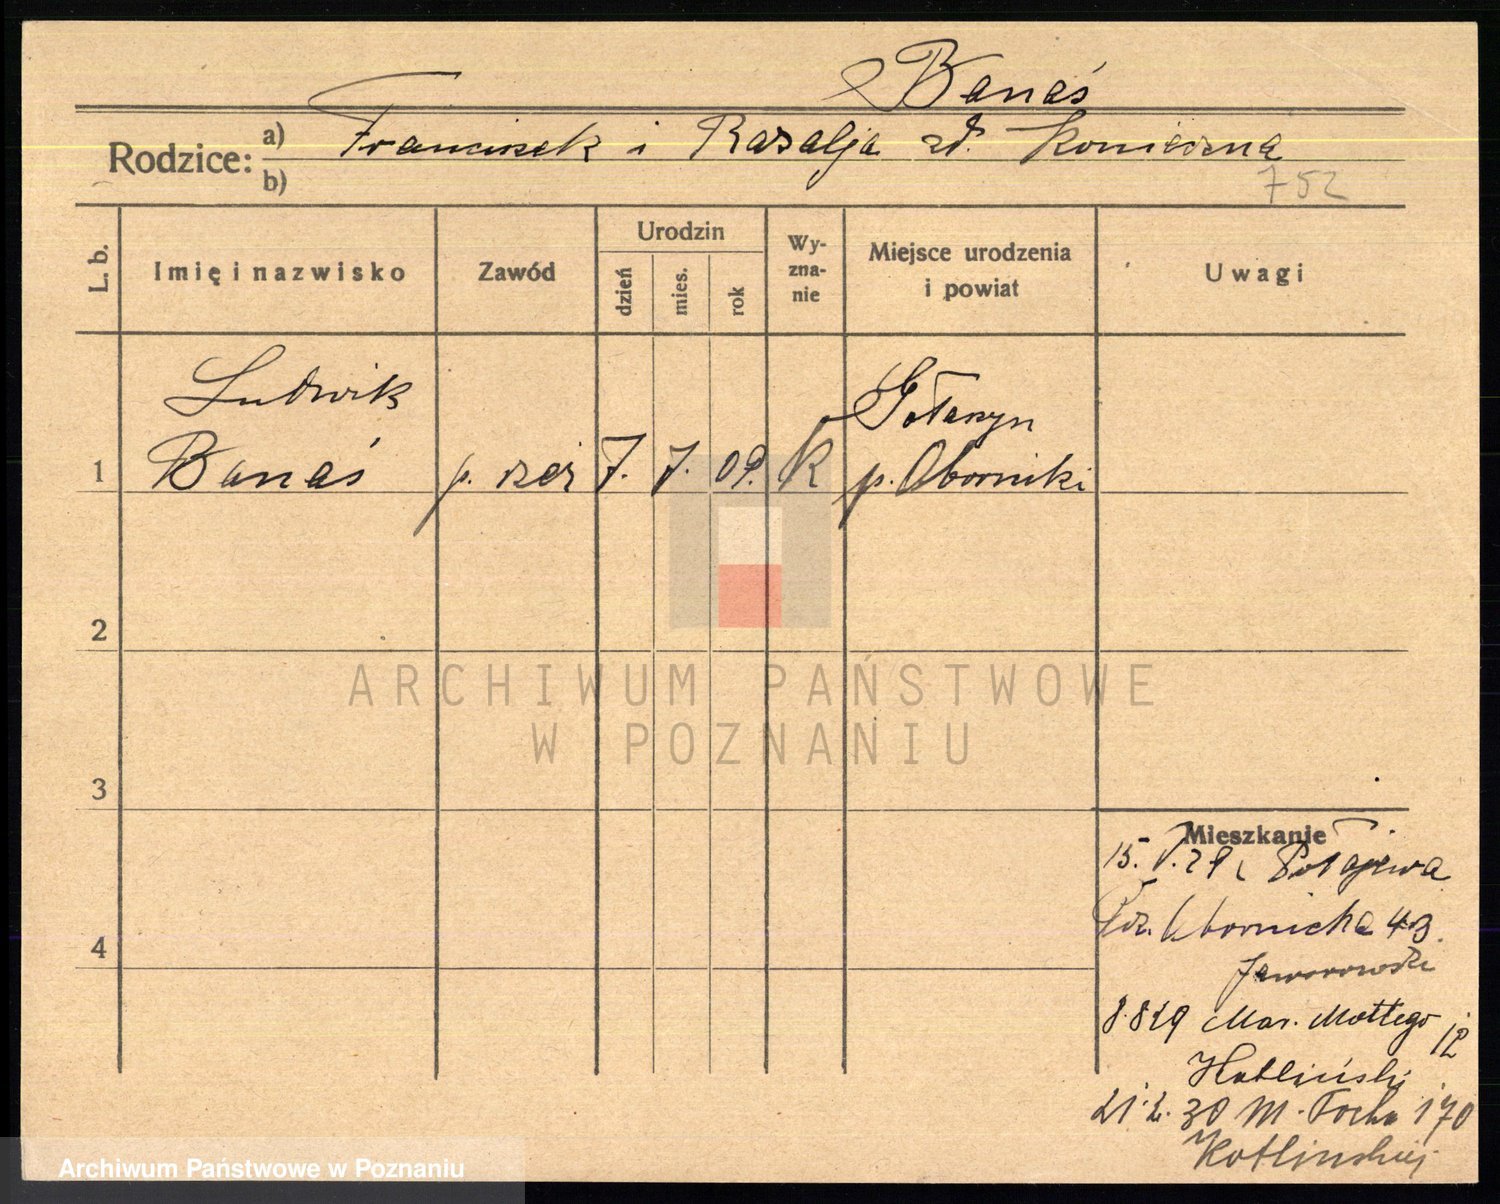 Banaś
Rodzice: a) Franciszek i Rozalja zd. Konieczna
b)
752
L. b.
Imię i nazwisko
Zawód
Urodzin
dzień
mies.
rok
Wy-
zna-
nie
Miejsce urodzenia
i powiat
Uwagi
Ludwik
Gołaszyn
1 Banaś p. rzeź 7. 7. 09. K p. Oborniki
2
3
4
ARCHIWUM PAŃSTWOWE
W POZNANIU
Mieszkanie
15. V. 29 z Połajewa
Obornicka 43
Jaworowski
8.8 29 Mar. Mottego 12
Kotliński
21. 2. 30 M. Focha 170
Kotlinskiej
Archiwum Państwowe w Poznaniu